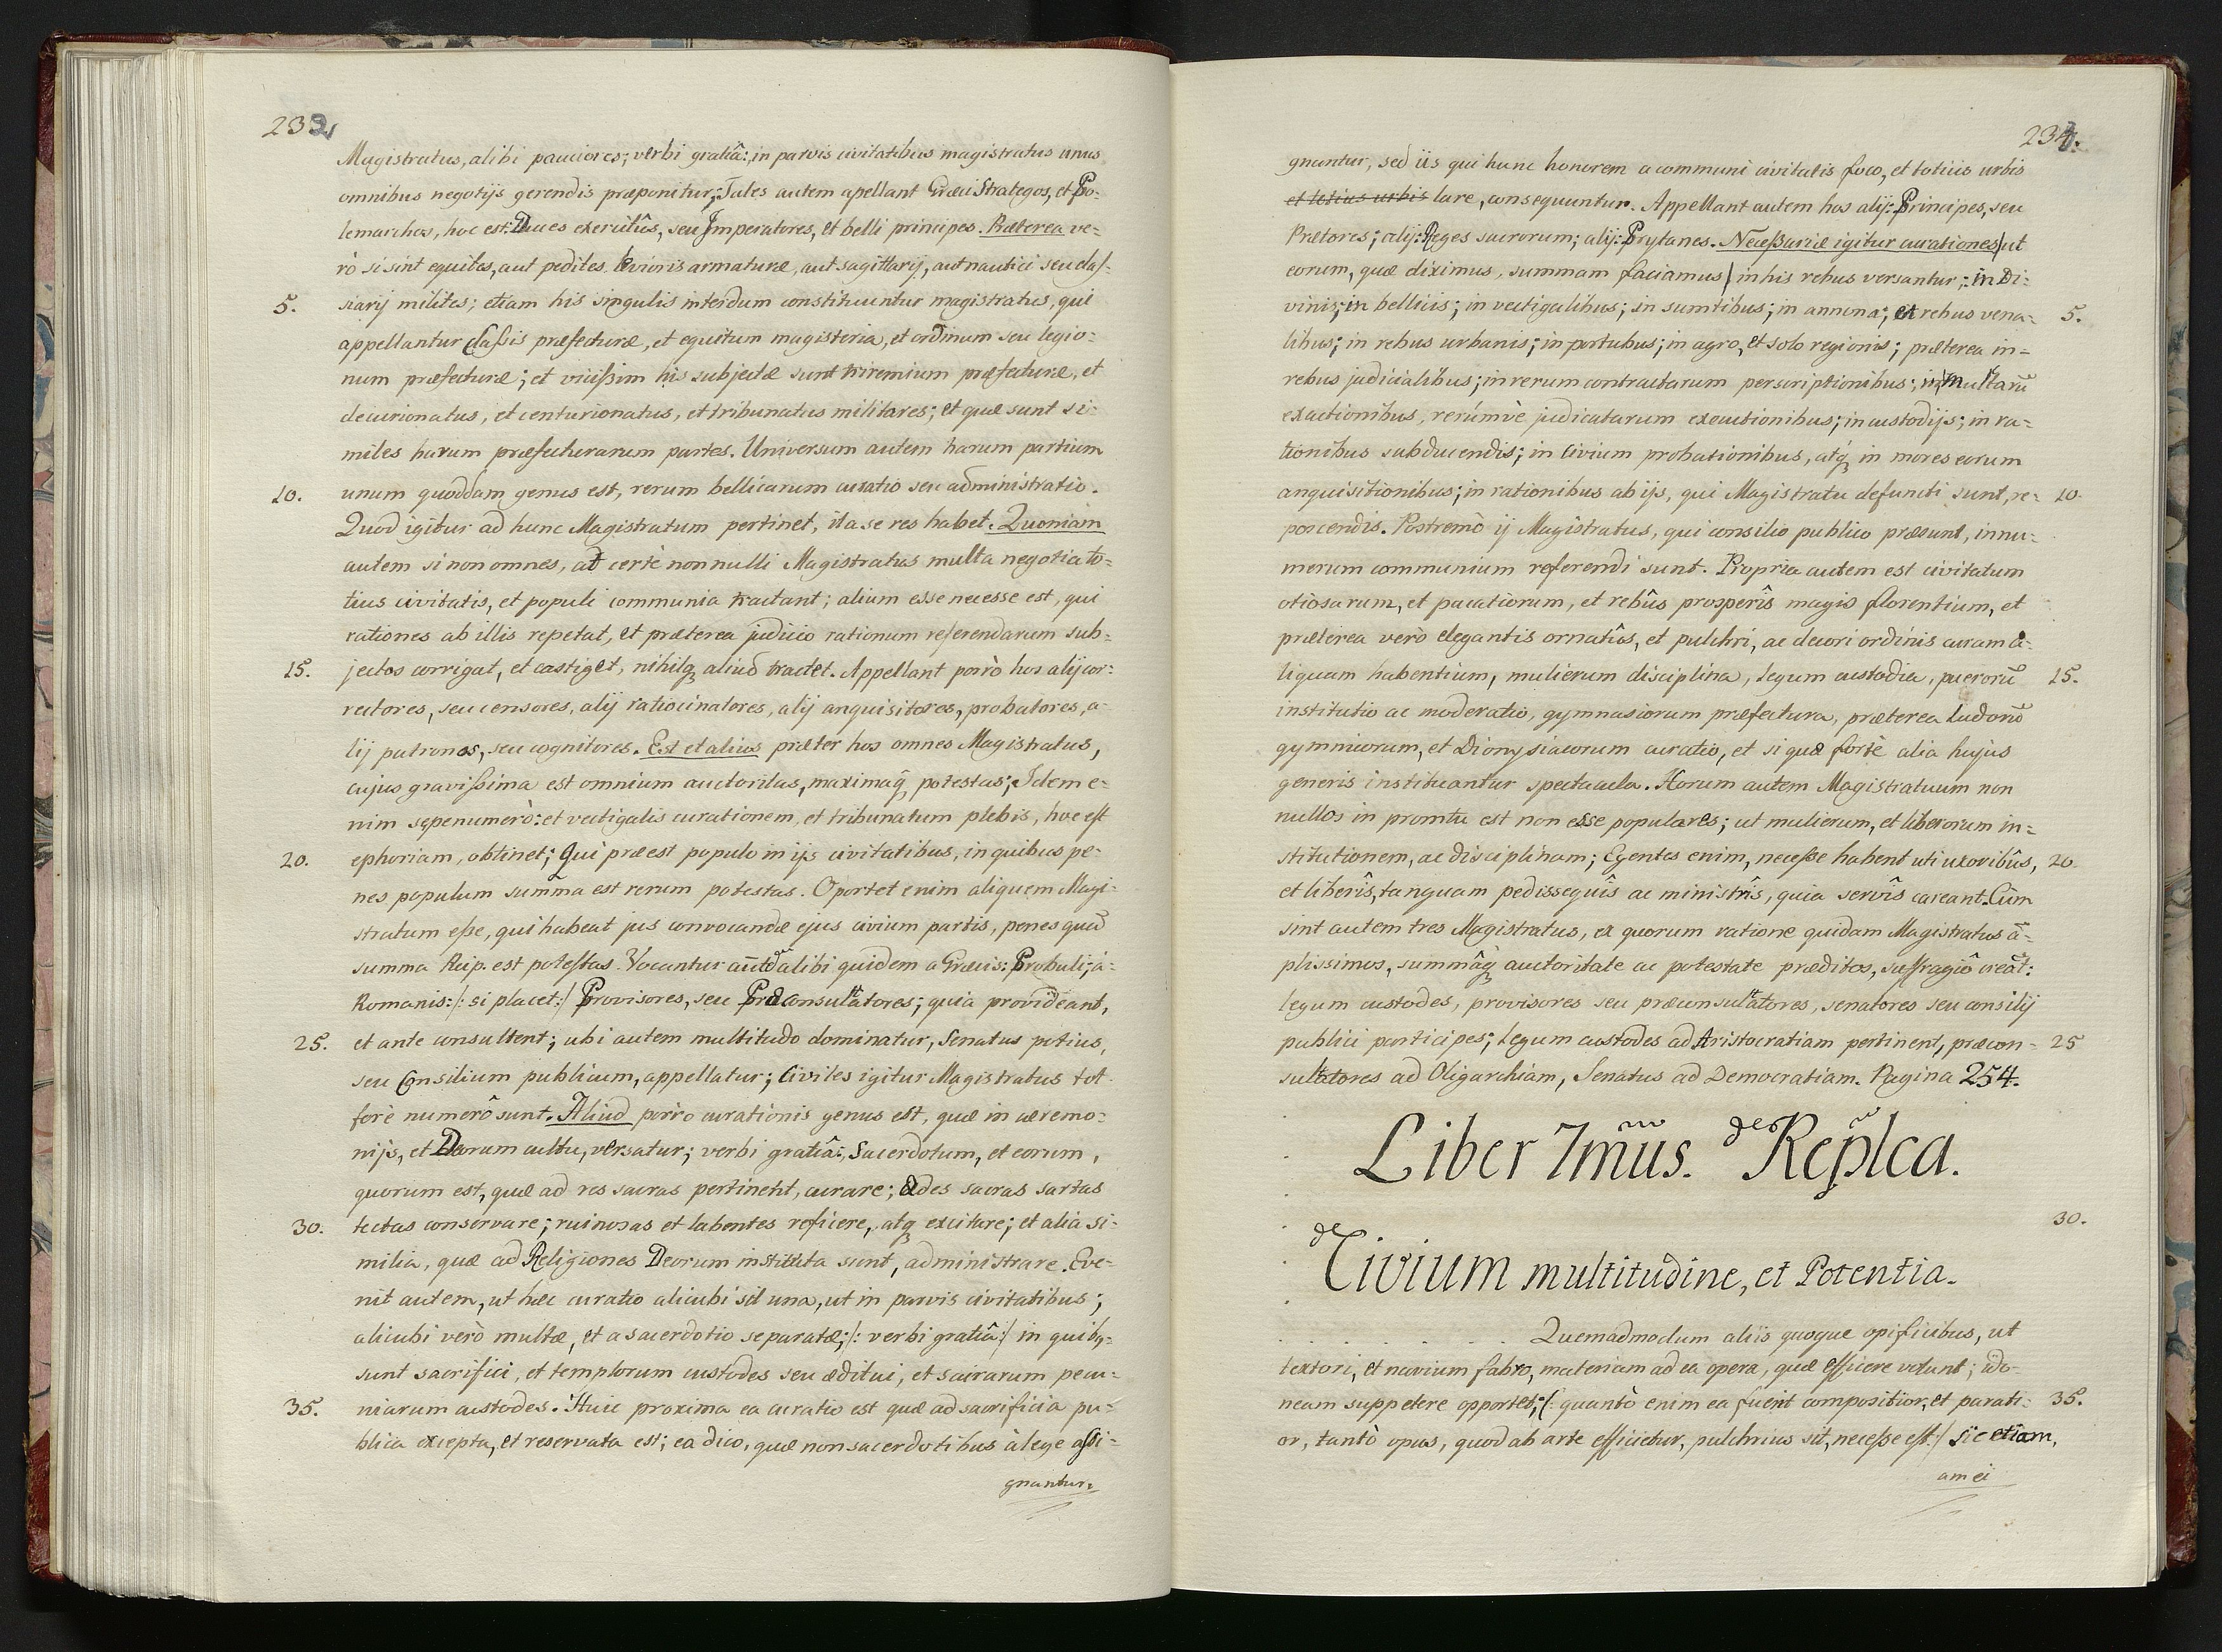 232
Magistratus, alibi pauciores; verbi gratiâ: in parvis civitatibus magistratus unus
omnibus negotijs gerendis præponitur; Tales autem apellant Græci Strategos, et Po-
lemarchos, hoc est: Duces exercitûs, seu Imperatores, et belli principes. Præterea ve-
rò si sint equites, aut pedites levioris armaturæ, aut sagittarij, aut nautici seu clas-
5. siarij milites; etiam his singulis interdum constituuntur magistratus, qui
appellantur Classis præfecturæ, et equitum magisteria, et ordinum seu legio-
num præfecturæ; et vicissim his subjectæ sunt triremium præfecturæ, et
decurionatus, et centurionatus, et tribunatus militares; et quæ sunt si-
miles harum præfecturarum partes. Universum autem harum partium
10. unum quoddam genus est, rerum bellicarum curatio seu administratio.
Quod igitur ad hunc Magistratum pertinet, ita se res habet. Quoniam
autem si non omnes, at certè nonnulli Magistratus multa negotia to-
tius civitatis, et populi communia tractant; alium esse necesse est, qui
rationes ab illis repetat, et præterea judicio rationum referendarum sub-
15. jectos corrigat, et castiget, nihilq aliud tractet. Appellant porrò hos alij cor-
rectores, seu censores, alij ratiocinatores, alij anquisitores, probatores, a-
lij patronos, seu cognitores. Est et alius præter hos omnes Magistratus,
cujus gravissima est omnium auctoritas, maximaq potestas; Idem e-
nim sepenumerò: et vectigalis curationem, et tribunatum plebis, hoc est
20. ephoriam, obtinet; Qui præest populo in ijs civitatibus, in quibus pe-
nes populum summa est rerum potestas. Oportet enim aliquem Magi-
stratum esse, qui habeat jus convocandæ ejus civium partis, penes quā
summa Reip. est potestas. Vocantur aut alibi quidem a Græcis: Probuli; á-
Romanis: /: si placet: / Provisores, seu Præconsultatores; quia provideant,
25. et ante consultent; ubi autem multitudo dominatur, Senatus potius,
seu Consilium publicum, appellatur; Civiles igitur Magistratus tot
ferè numerô sunt. Aliud porro curationis genus est, quæ in cæremo-
nijs, et Deorum cultu, versatur; verbi gratiâ:, Sacerdotum, et eorum,
quorum est, quæ ad res sacras pertinent, curare; ædes sacras sartas
30. tectas conservare; ruinosas et labentes reficere, atq excitare; et alia si-
milia, quæ ad Religiones Deorum instituta sunt, administrare. Eve-
nit autem, ut hæc curatio alicubi sit una, ut in parvis civitatibus;
alicubi verò multæ, et a sacerdotio separatæ; /: verbi gratiâ :/ in quibq-
sunt sacrifici, et templorum custodes seu æditui, et sacrarum pecu-
35. niarum custodes. Huic proxima ea curatio est quæ ad sacrificia pu-
blica excepta, et reservata est; ea dico, quæ non sacerdotibus à lege assi-
gnantur
233.
gnantur, sed iis qui hunc honorem a communi civitatis foco, et totius urbis
et totius urbis lare, consequuntur. Appellant autem hos alij: Principes, seu
Prætores; alij: Reges sacrorum; alij: Prytanes. Necessariæ igitur curationes / ut
eorum, quæ diximus, summam faciamus / in his rebus versantur; in Di-
vinis; in bellicis; in vectigalibus; in sumtibus; in annona; et rebus vena- 5.
libus; in rebus urbanis; in portubus; in agro, et solo regionis; præterea in-
rebus judicialibus; in rerum contractarum perscriptionibus; in multarū
exactionibus, rerúmve judicatarum executionibus; in custodijs; in ra-
tionibus subducendis; in Civium probationibus, atq in mores eorum
anquisitionibus; in rationibus ab ijs, qui Magistratu defuncti sunt, re- 10.
poscendis. Postremò ij Magistratus, qui consilio publico præsunt, innu-
merum communium referendi sunt. Propria autem est civitatum
otiosarum, et pacatiorum, et rebûs prosperîs magis florentium, et
præterea verò elegantis ornatûs, et pulchri, ac decori ordinis curam a-
liquam habentium, mulierum disciplina, legum custodia, puerorū 15.
institutio ac moderatio, gymnasiorum præfectura, præterea ludorū
gymnicorum, et Dionysiacorum curatio, et si quæ fortè alia hujus
generis instituantur spectacula. Horum autem Magistratuum non
nullos in promtu est non esse populares; ut mulierum, et liberorum in-
stitutionem, ac disciplinam; Egentes enim, necesse habent uti uxoribûs, 20
et liberîs, tanquam pedissequîs ac ministrîs, quia servîs careant. Cùm
sint autem tres Magistratus, ex quorum ratione quidam Magistratus ā-
plissimos, summâq auctoritate ac potestate præditos, suffragiô creāt:
legum custodes, provisores seu præconsultatores, senatores seu consilij
publici participes; Legum custodes ad Aristocratiam pertinent, præcon- 25
sultatores ad Oligarchiam, Senatus ad Democratiam. Pagina 254.
Liber 7mus. de Replca.
30.
de Civium multitudine, et Potentia.
Quemadmodum aliis quoque opificibus, ut
textori, et navium fabro, materiam ad ea opera, quæ efficere volunt; ido-
neam suppetere opportet; /: quantò enim ea fuerit compositior, et parati- 35.
or, tantò opus, quod ab arte efficietur, pulchrius sit, necesse est :/ sic etiam,
am ei